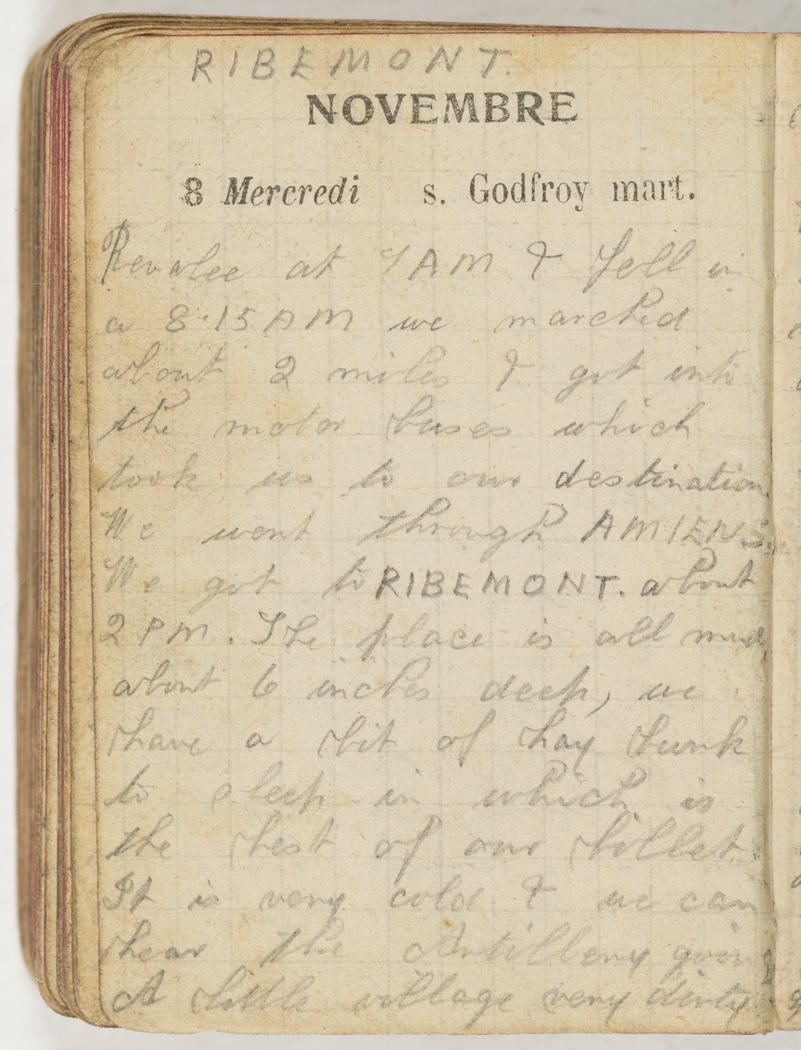 RIBEMONT.
NOVEMBRE
8 Mercredi s. Godfroy mart.
Revalee at 7 AM & fell in
a 8.15 AM we marched
about 2 miles & got into
the motor buses which
took us to our destination.
We went through AMIENS.
We got to RIBEMONT. about
2 PM. The place is all mud,
about 6 inches deep, we
have a bit of hay bunk
to sleep in which is
the best of our billet.
It is very cold & we can
hear the Artillery going
A little village very dirty